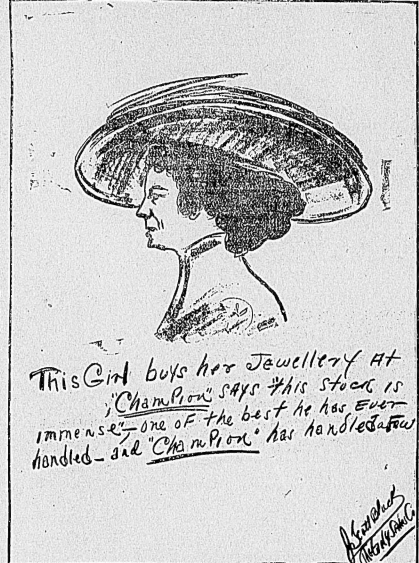 This Girl buys her Jewellery At
"Champion" says "this stock is
immense"—one of the best he has Ever
handled— and "Champion" has handled a few
Scott Black